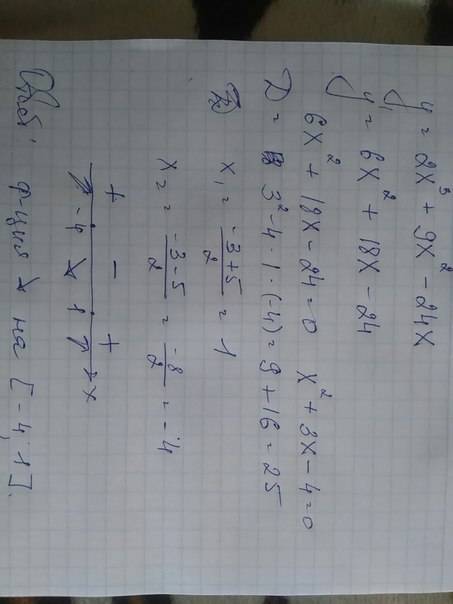 y = 2x³ + 9x² - 24x
y' = 6x² + 18x - 24
6x² + 18x - 24 = 0 x² + 3x - 4 = 0
D = 3² - 4 · 1 · (-4) = 9 + 16 = 25
x₁ = (-3 + 5)/2 = 1
x₂ = (-3 - 5)/2 = -8/2 = -4
+ - +
↗ -4 ↘ 1 ↗ x
Ответ: ф-ция ↘ на [-4; 1].